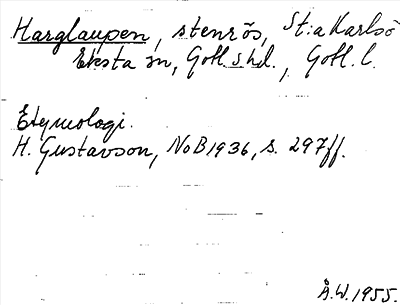 Harglaupen, stenrös, St:a Karlsö
Eksta sn, Gotl. s hd., Gotl. l.
Etymologi.
H. Gustavson, NoB 1936, s. 297ff.
Å.W. 1955.